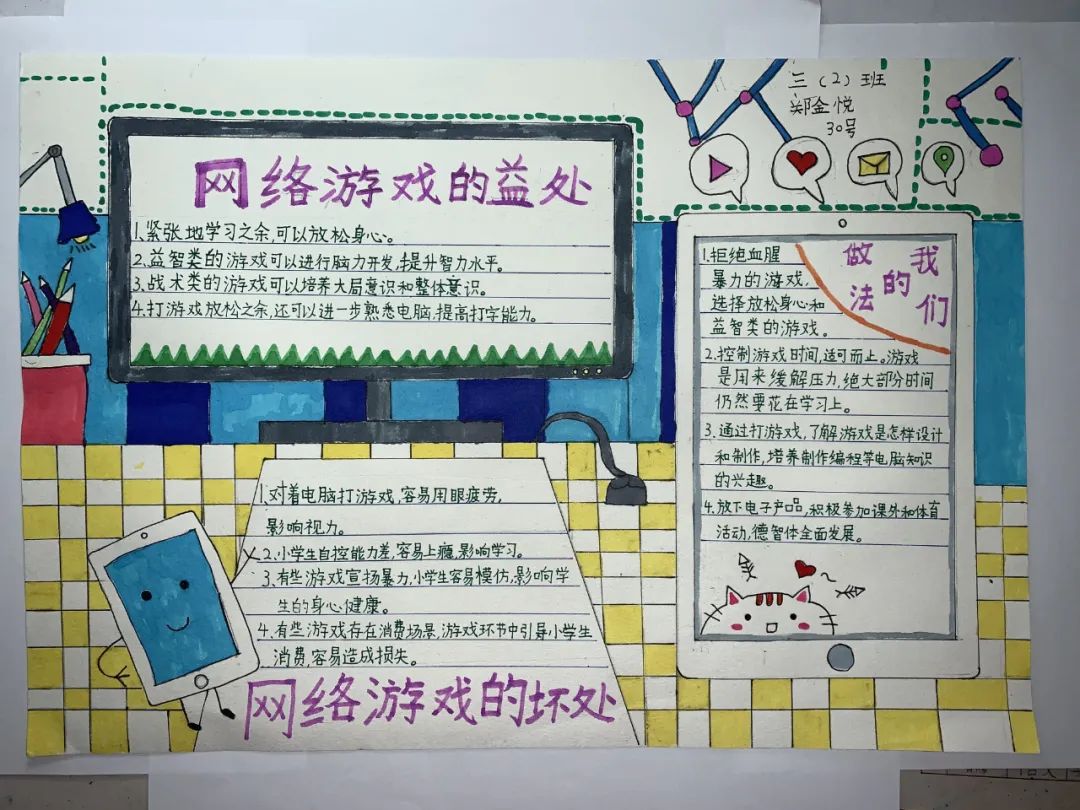 三（2）班
郑金悦
30号
网络游戏的益处
1.紧张地学习之余,可以放松身心。
2.益智类的游戏可以进行脑力开发,提升智力水平。
3.战术类的游戏可以培养大局意识和整体意识。
4.打游戏放松之余,还可以进一步熟悉电脑,提高打字能力。
我们
的
做法
1.拒绝血腥
暴力的游戏,
选择放松身心和
益智类的游戏。
2.控制游戏时间,适可而上。游戏
是用来缓解压力,绝大部分时间
仍然要花在学习上。
3.通过打游戏,了解游戏是怎样设计
和制作,培养制作编程等电脑知识
的兴趣。
4.放下电子产品,积极参加课外和体育
活动,德智体全面发展。
1.对着电脑打游戏,容易用眼疲劳,
影响视力。
2.小学生自控能力差,容易上瘾,影响学习。
3.有些游戏宣扬暴力,小学生容易模仿,影响学
生的身心健康。
4.有些游戏存在消费场景,游戏环节中引导小学生
消费,容易造成损失。
网络游戏的坏处